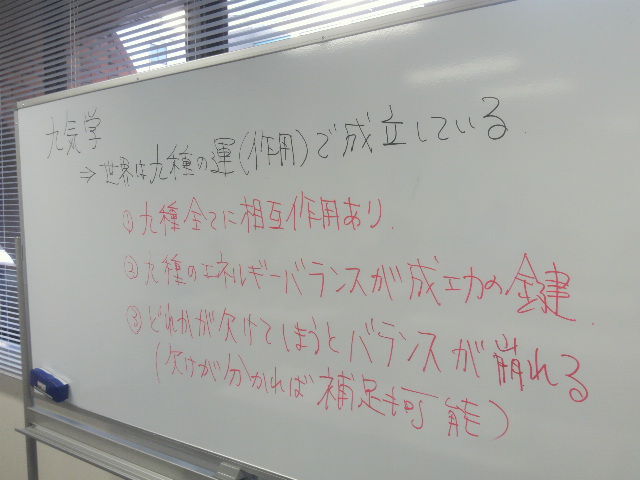 九気学
⇒世界は九種の運(作用)で成立している.
①九種全てに相互作用あり.
②九種のエネルギーバランスが成功の鍵.
③どれかが欠けてしまうとバランスが崩れる
(欠けが分かれば補足も可能)